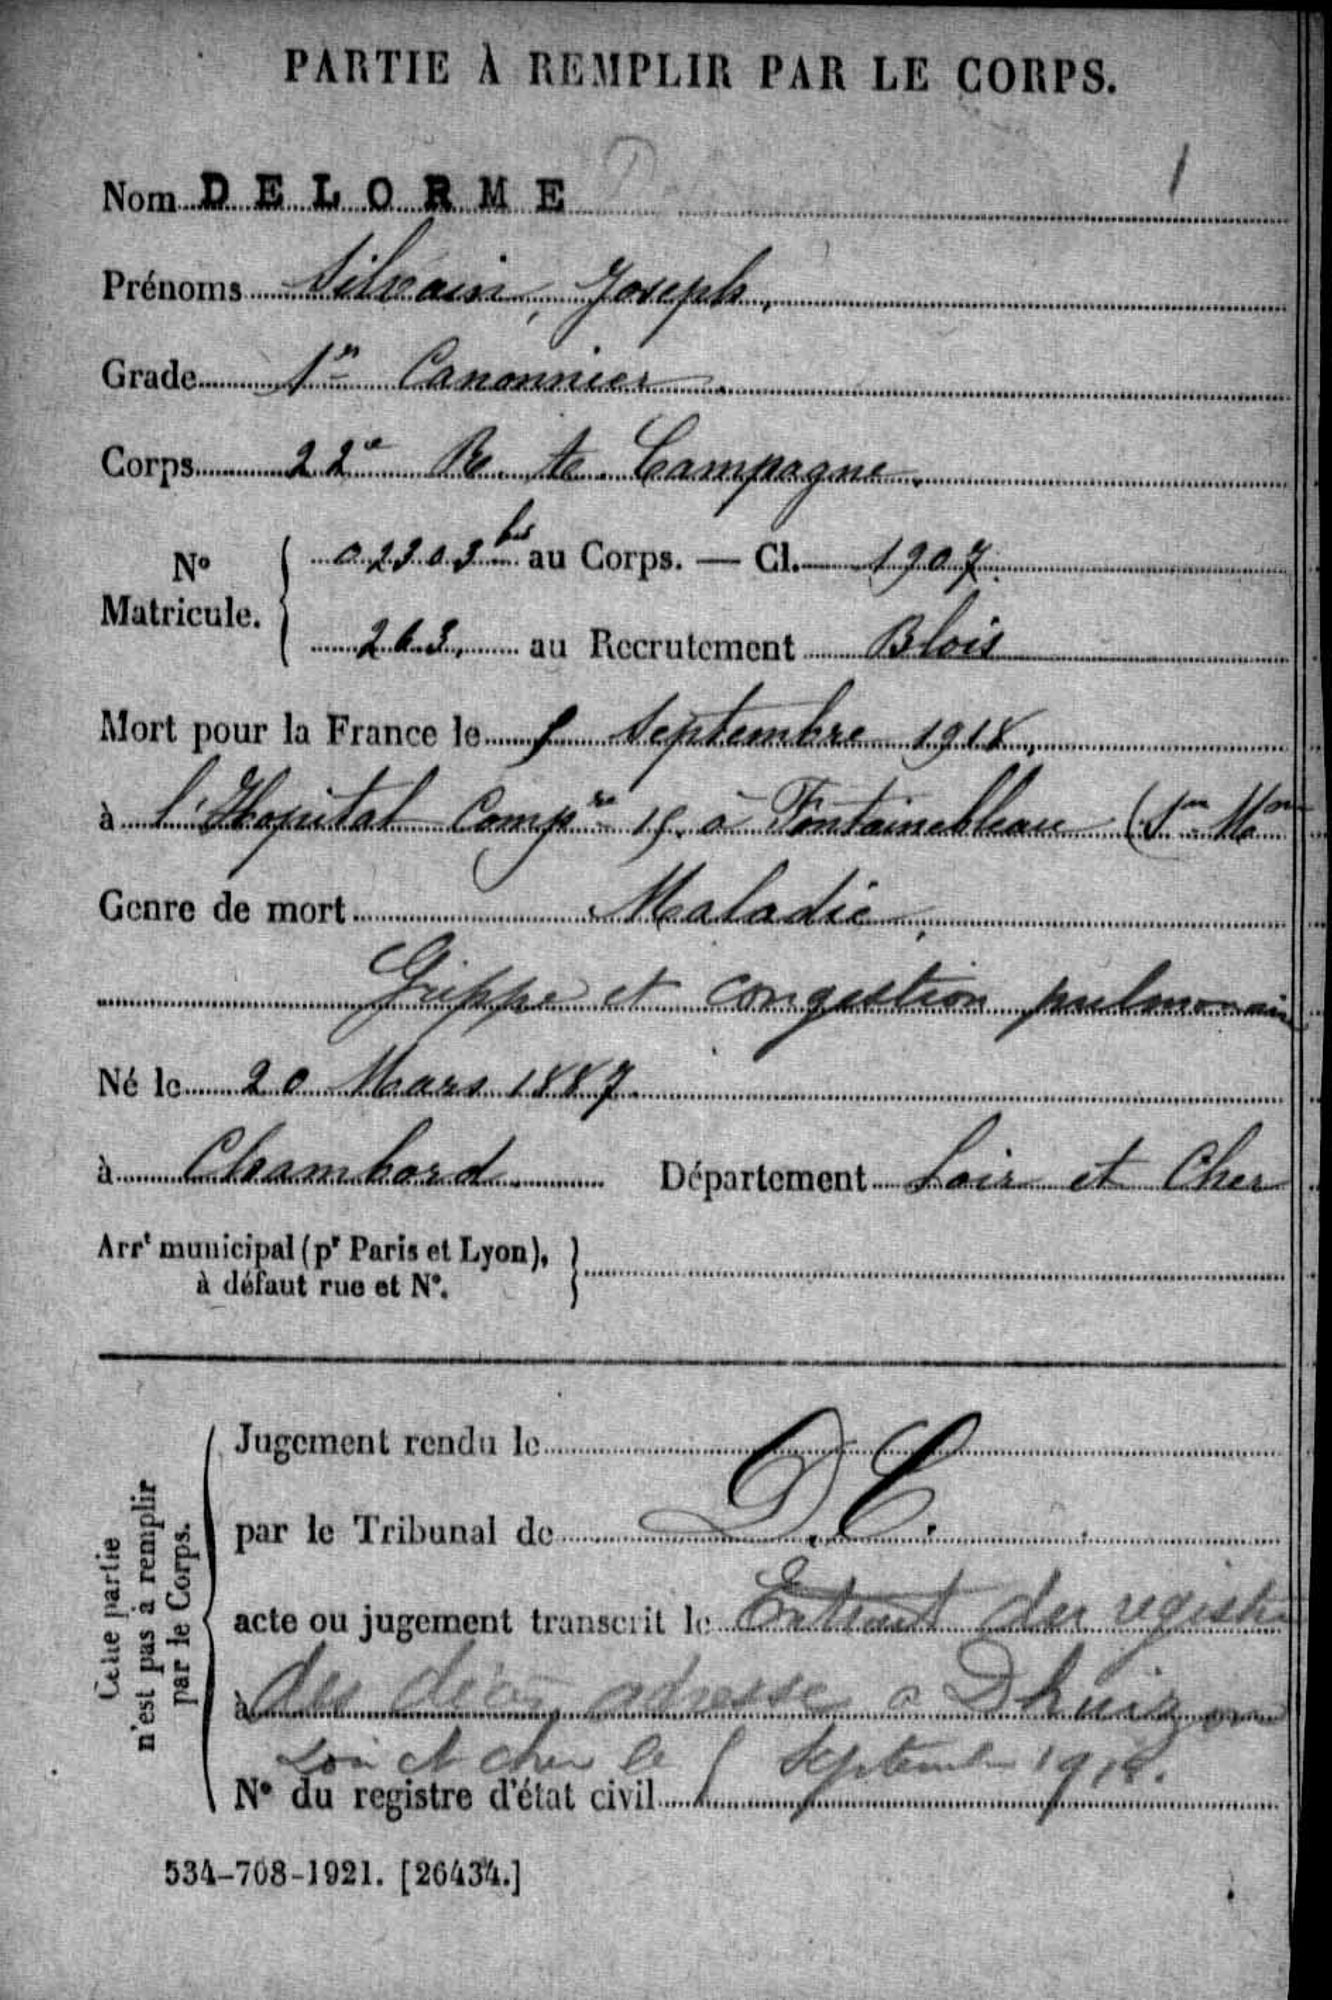 PARTIE À REMPLIR PAR LE CORPS.
1
Nom DELORME
Prénoms Silvain, Joseph,
Grade 1er Canonnier.
Corps 22e R. A. Campagne.
No Matricule. { 02303 bis au Corps. — Cl. 1907.
263. au Recrutement Blois
Mort pour la France le 5 Septembre 1918,
à l'Hopital Compre 15. à Fontainebleau (Sne Mne
Genre de mort Maladie,
Grippe et congestion pulmonaire
Né le 20 Mars 1887.
à Chambord. Département Loir et Cher
Arrt municipal (pr Paris et Lyon), à défaut rue et No. }
Cette partie n'est pas à remplir par le Corps.
Jugement rendu le
par le Tribunal de D. C.
acte ou jugement transcrit le Extrait des registre
à des décès adresse a Dhuizon
Loir et cher le 5 Septembre 1918.
No du registre d'état civil
534-708-1921. [26434.]